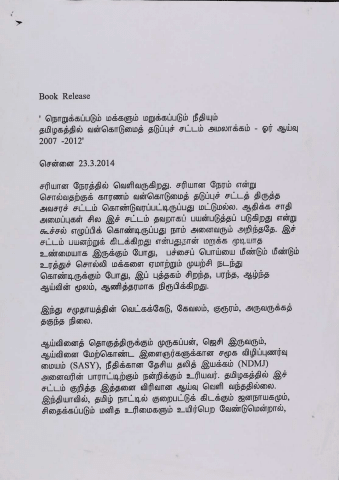 Book Release
' நொறுக்கப்படும் மக்களும் மறுக்கப்படும் நீதியும்
தமிழகத்தில் வன்கொடுமைத் தடுப்புச் சட்டம் அமலாக்கம் - ஓர் ஆய்வு
2007 -2012'
சென்னை 23.3.2014
சரியான நேரத்தில் வெளிவருகிறது. சரியான நேரம் என்று
சொல்வதற்குக் காரணம் வன்கொடுமைத் தடுப்புச் சட்டத் திருத்த
அவசரச் சட்டம் கொண்டுவரப்பட்டிருப்பது மட்டுமல்ல. ஆதிக்க சாதி
அமைப்புகள் சில இச் சட்டம் தவறாகப் பயன்படுத்தப் படுகிறது என்று
கூச்சல் எழுப்பிக் கொண்டிருப்பது நாம் அனைவரும் அறிந்ததே. இச்
சட்டம் பயனற்றுக் கிடக்கிறது என்பதுதான் மறுக்க முடியாத
உண்மையாக இருக்கும் போது, பச்சைப் பொய்யை மீண்டும் மீண்டும்
உரத்துச் சொல்லி மக்களை ஏமாற்றும் முயற்சி நடந்து
கொண்டிருக்கும் போது, இப் புத்தகம் சிறந்த, பரந்த, ஆழ்ந்த
ஆய்வின் மூலம், ஆணித்தரமாக நிரூபிக்கிறது.
இந்து சமுதாயத்தின் வெட்கக்கேடு, கேவலம், குரூரம், அருவருக்கத்
தகுந்த நிலை.
ஆய்வினைத் தொகுத்திருக்கும் முருகப்பன், ஜெசி இருவரும்,
ஆய்வினை மேற்கொண்ட இளைஞர்களுக்கான சமூக விழிப்புணர்வு
மையம் (SASY), நீதிக்கான தேசிய தலித் இயக்கம் (NDMJ)
அனைவரின் பாராட்டிற்கும் நன்றிக்கும் உரியவர். தமிழகத்தில் இச்
சட்டம் குறித்த இத்தனை விரிவான ஆய்வு வெளி வந்ததில்லை.
இந்தியாவில், தமிழ் நாட்டில் குறைபட்டுக் கிடக்கும் ஜனநாயகமும்,
சிதைக்கப்படும் மனித உரிமைகளும் உயிர்பெற வேண்டுமென்றால்,